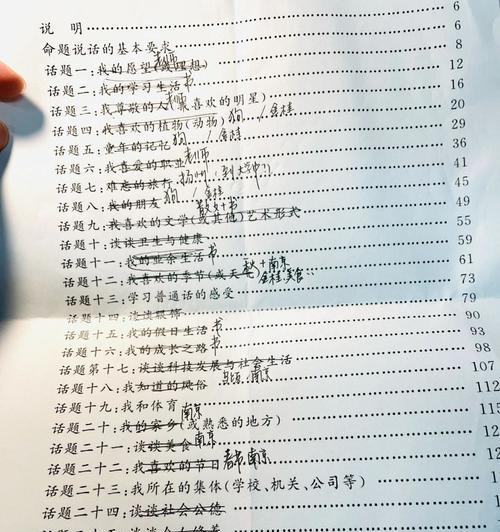 说 明 6
命题说话的基本要求 6
话题一：我的愿望(或理想) 老师 8
话题二：我的学习生活 书 12
话题三：我尊敬的人(最喜欢的明星) 老师 12
话题四：我喜欢的植物(动物) 狗/金桂 16
话题五：童年的记忆 狗/金桂 20
话题六：我喜爱的职业 老师 29
话题七：难忘的旅行 扬州 36
话题八：我的朋友 狗/金桂 41
话题九：我喜欢的文学(或其他)艺术形式 散文+书 45
话题十：谈谈卫生与健康 49
话题十一：我的业余生活 书 55
话题十二：我喜欢的季节(或天气) 秋+南京 金桂美食 59
话题十三：学习普通话的感受 61
话题十四：谈谈服饰 73
话题十五：我的假日生活 书 79
话题十六：我的成长之路 书 90
话题第十七：谈谈科技发展与社会生活 93
话题十八：我知道的风俗 南京 107
话题十九：我和体育 112
话题二十：我的家乡(或熟悉的地方) 南京 115
话题二十一：谈谈美食 南京 12
话题二十二：我喜欢的节日 春节 南京 12
话题二十三：我所在的集体(学校、机关、公司等) 1
话题二十四：谈谈社会公德